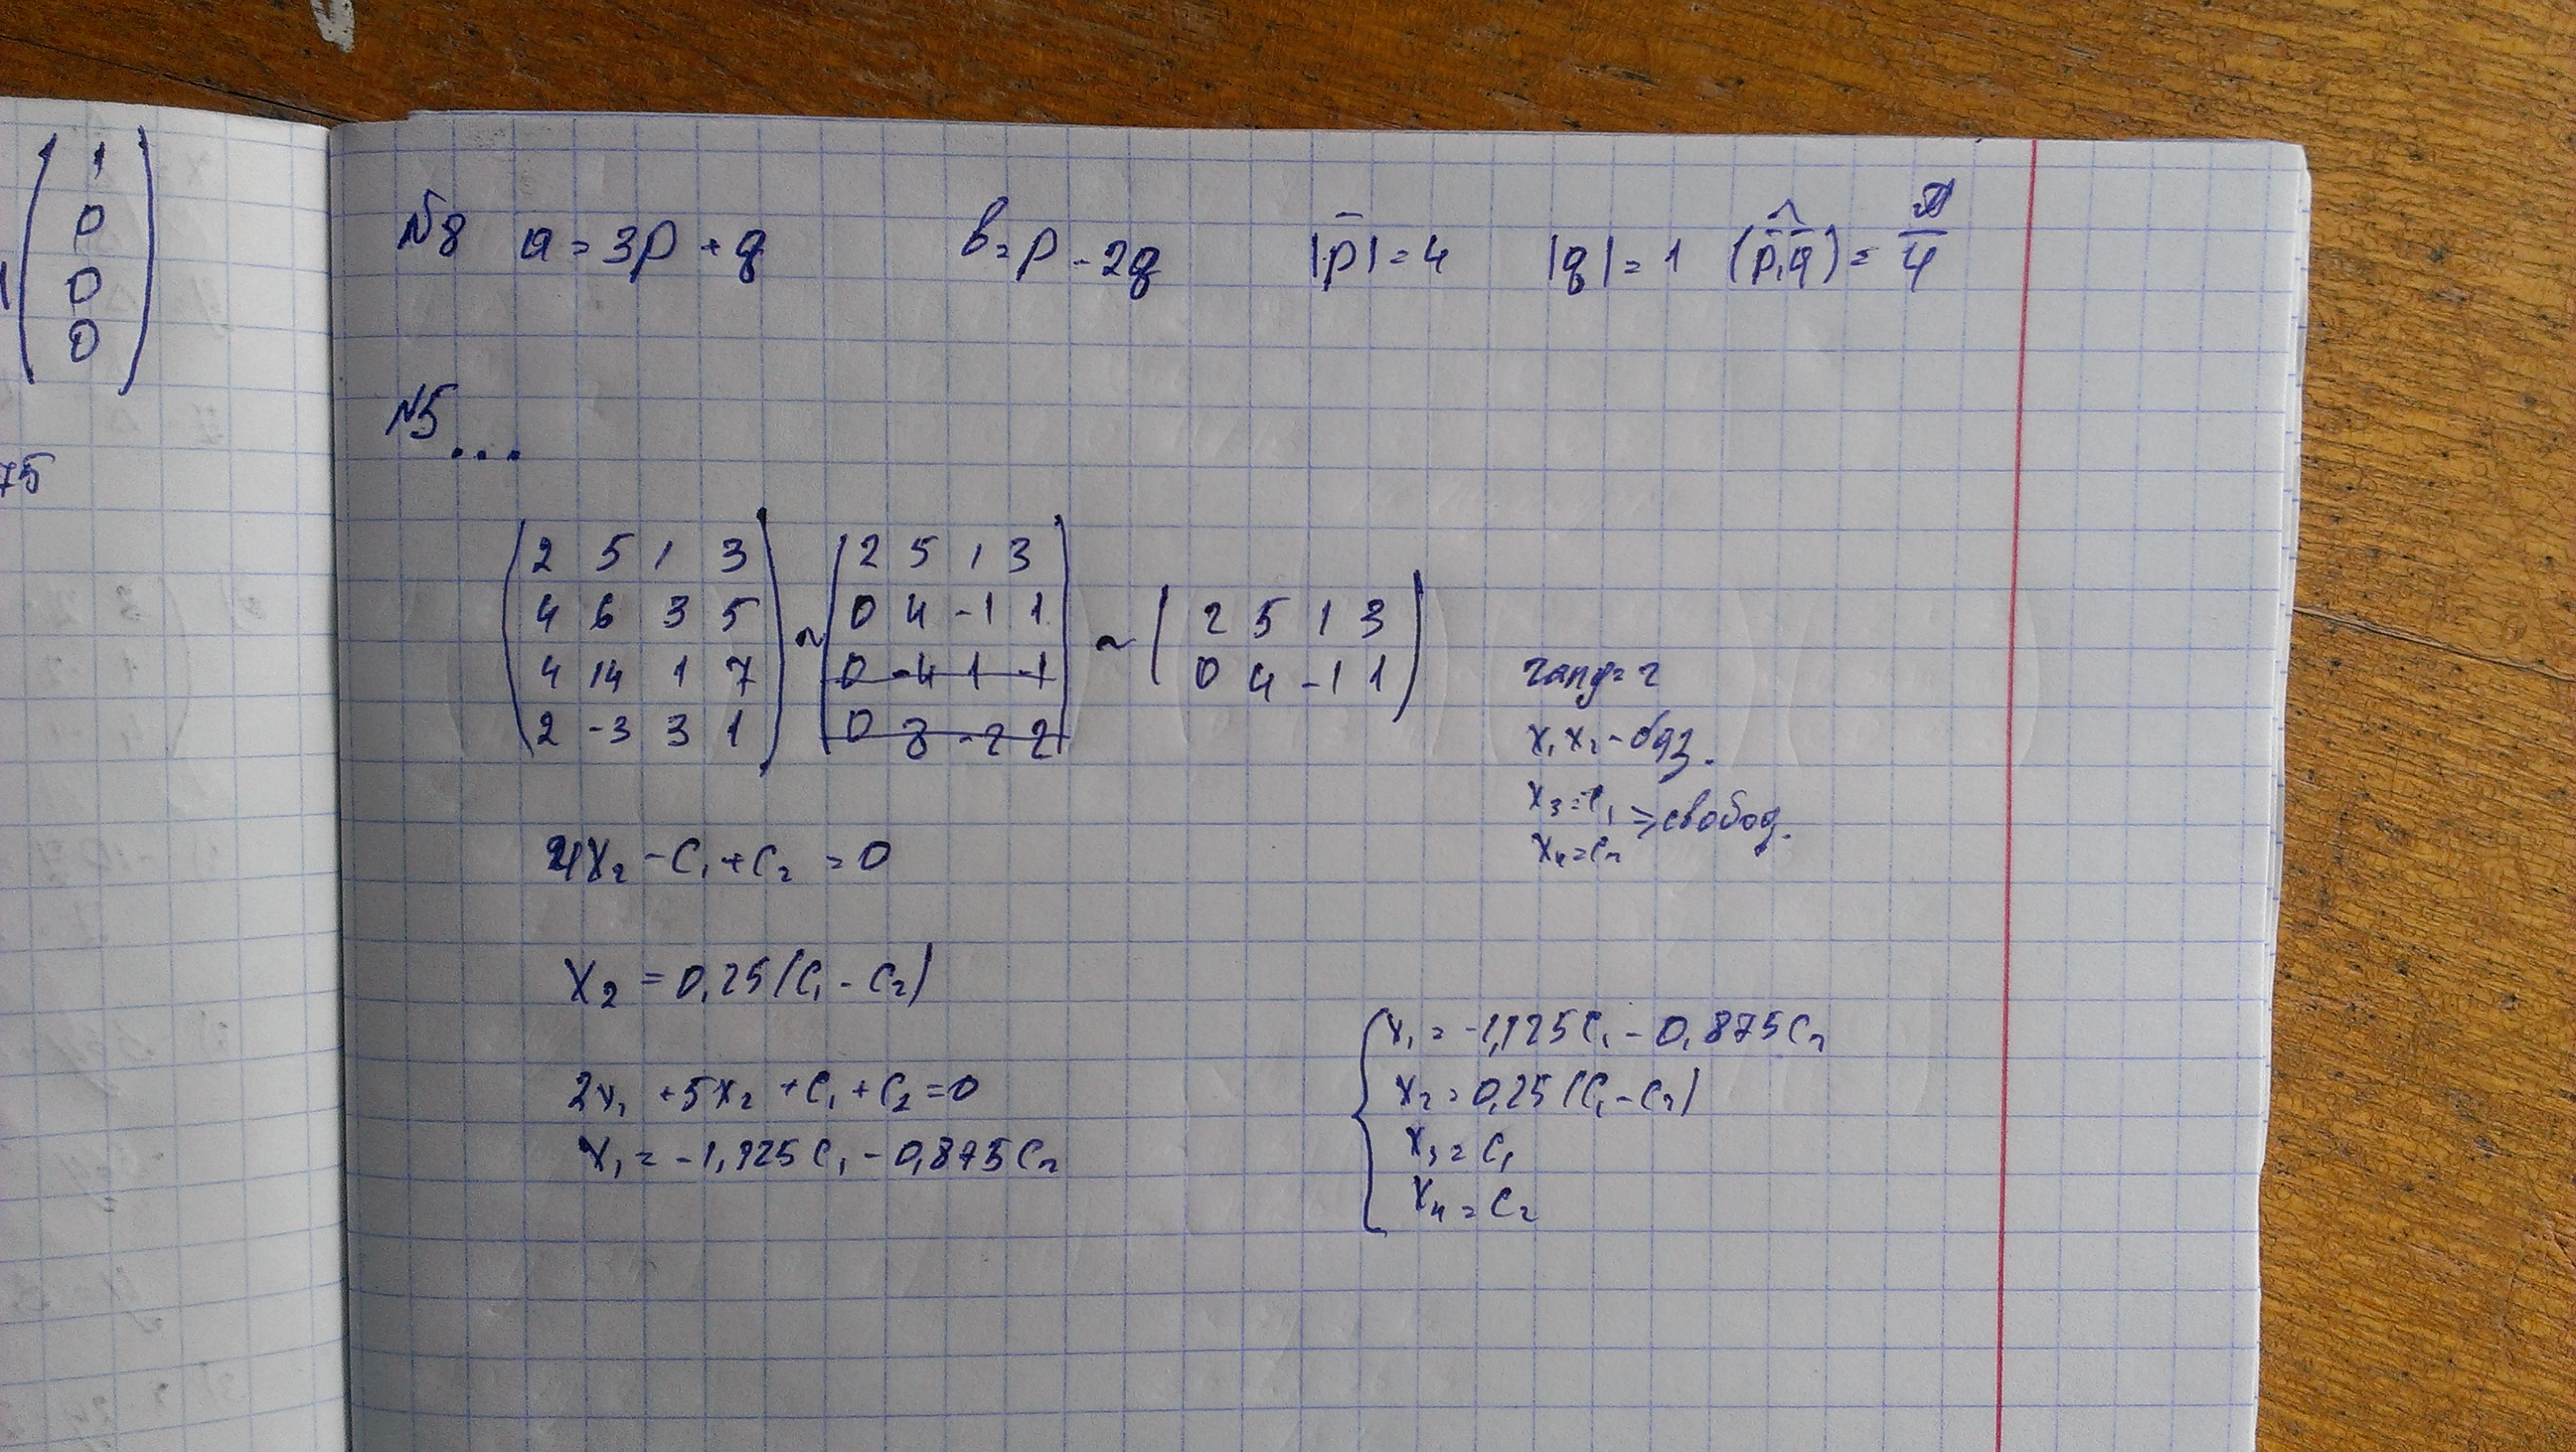 1
0
0
0
75
№8 a = 3p + q b = p - 2q |p̅| = 4 |q| = 1 (p̅,q̅)^ = π/4
№5...
( 2 5 1 3 ) ~ ( 2 5 1 3 )
( 4 6 3 5 ) ( 0 4 -1 1 ) ~ ( 2 5 1 3 )
( 4 14 1 7 ) ( 0 -4 1 -1 ) ( 0 4 -1 1 )
( 2 -3 3 1 ) ( 0 8 -2 2 )
rang = 2
x₁ x₂ - баз.
x₃ = c₁
x₄ = c₂ > свобод.
4x₂ - c₁ + c₂ = 0
x₂ = 0,25(c₁ - c₂)
2x₁ + 5x₂ + c₁ + c₂ = 0
x₁ = -1,125c₁ - 0,875c₂
x₁ = -1,125c₁ - 0,875c₂
x₂ = 0,25(c₁ - c₂)
x₃ = c₁
x₄ = c₂